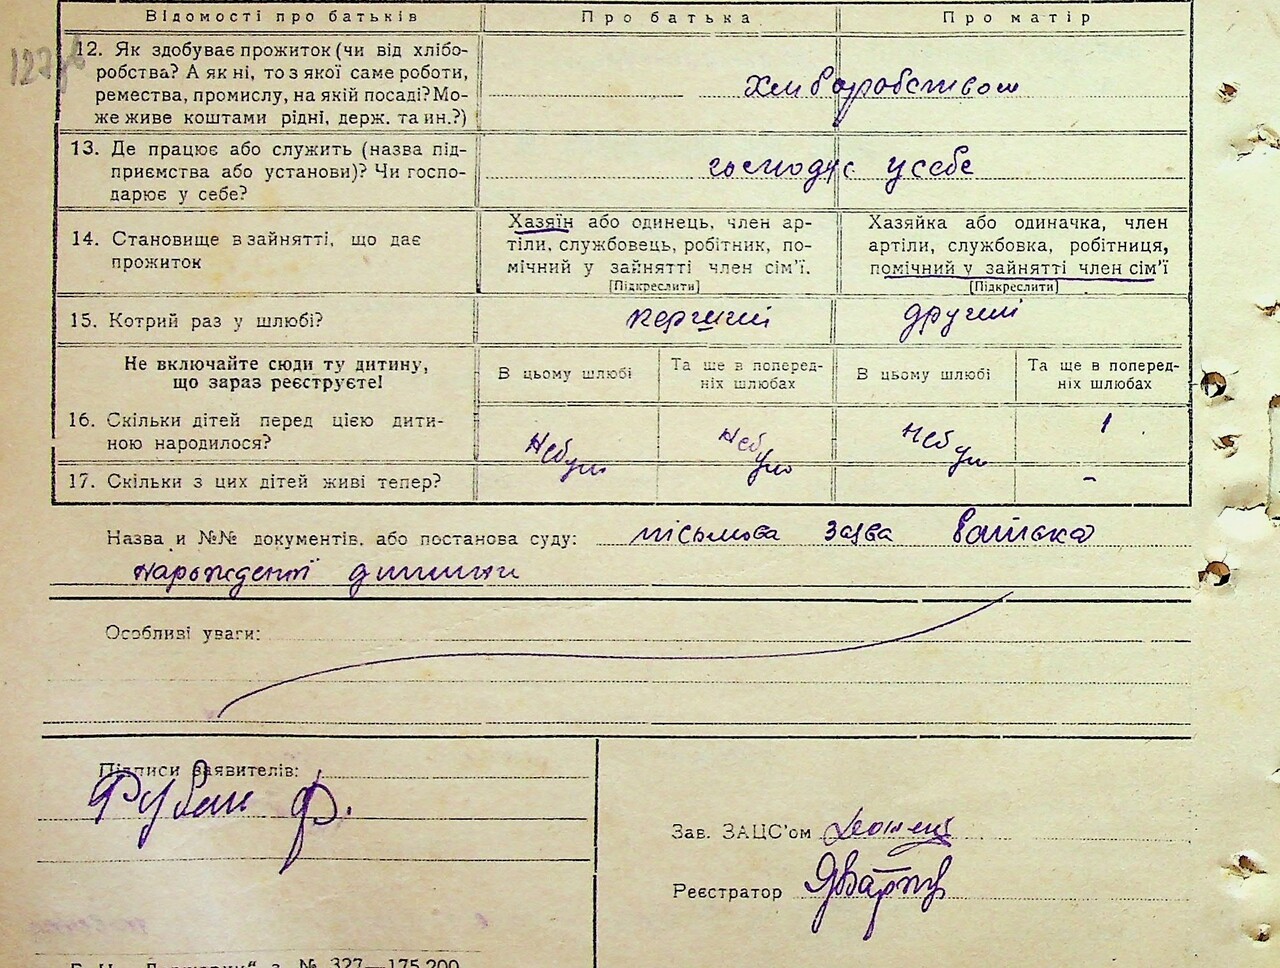 Відомості про батьків Про батька Про матір
127зв
12. Як здобуває прожиток (чи від хлібо-
робства? А як ні, то з якої саме роботи,
ремества, промислу, на якій посаді? Мо-
же живе коштами рідні, держ. та ин.?)
Хліборобством
13. Де працює або служить (назва під-
приємства або установи)? Чи госпо-
дарює у себе?
господує у себе
14. Становище в зайнятті, що дає
прожиток
Хазяїн або одинець, член ар-
тілі, службовець, робітник, по-
мічний у зайнятті член сім'ї.
[Підкреслити]
Хазяйка або одиначка, член
артіли, службовка, робітниця,
помічний у зайнятті член сім'ї
[Підкреслити]
15. Котрий раз у шлюбі? перший другий
Не включайте сюди ту дитину,
що зараз реєструєте!
В цьому шлюбі
Та ще в поперед-
ніх шлюбах
В цьому шлюбі
Та ще в поперед-
ніх шлюбах
16. Скільки дітей перед цією дити-
ною народилося?
Небуло Небуло Небуло 1
17. Скільки з цих дітей живі тепер? -
Назва и №№ документів, або постанова суду: письмова заява батька
народженої дитини
Особливі уваги:
Підписи заявителів:
Рубан Ф.
Зав. ЗАЦС'ом
Реєстратор
№ 327—175.200